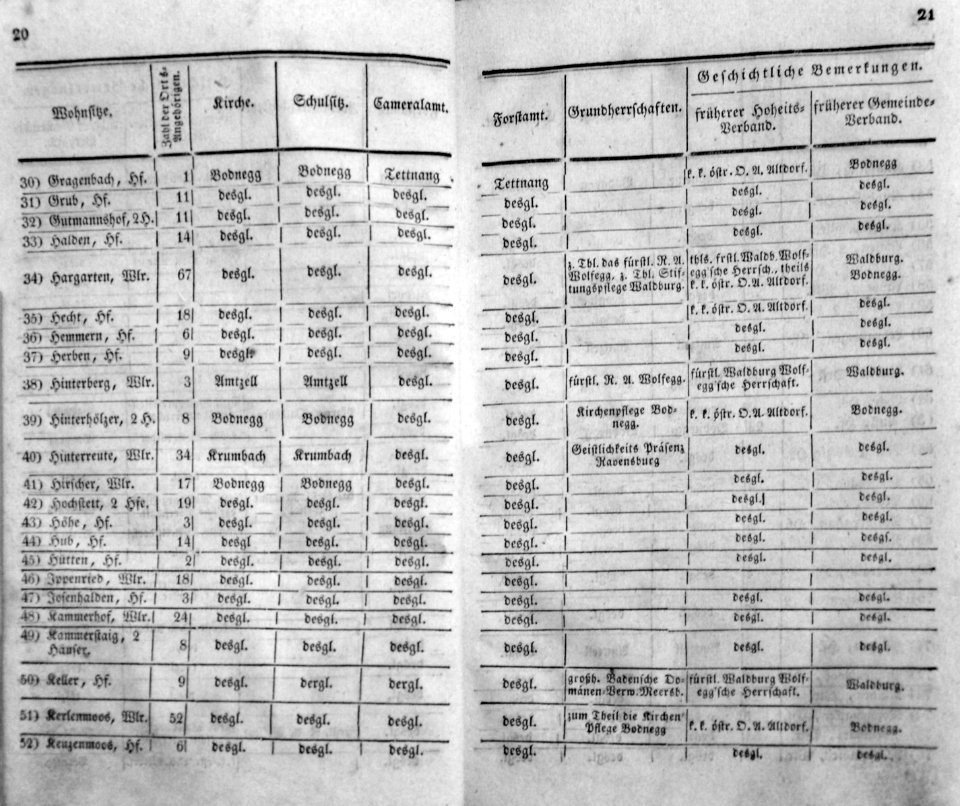 20
Wohnsitze. Zahl der Orts-Angehörigen. Kirche. Schulsitz. Cameralamt.
30) Gragenbach, Hf. 1 Bodnegg Bodnegg Tettnang
31) Grub, Hf. 11 desgl. desgl. desgl.
32) Gutmannshof, 2 H. 11 desgl. desgl. desgl.
33) Halden, Hf. 14 desgl. desgl. desgl.
34) Hargarten, Wlr. 67 desgl. desgl. desgl.
35) Hecht, Hf. 18 desgl. desgl. desgl.
36) Hemmern, Hf. 6 desgl. desgl. desgl.
37) Herben, Hf. 9 desgl. desgl. desgl.
38) Hinterberg, Wlr. 3 Amtzell Amtzell desgl.
39) Hinterhölzer, 2 H. 8 Bodnegg Bodnegg desgl.
40) Hinterreute, Wlr. 34 Krumbach Krumbach desgl.
41) Hirscher, Wlr. 17 Bodnegg Bodnegg desgl.
42) Hochstett, 2 Hfe. 19 desgl. desgl. desgl.
43) Höhe, Hf. 3 desgl. desgl. desgl.
44) Hub, Hf. 14 desgl. desgl. desgl.
45) Hütten, Hf. 2 desgl. desgl. desgl.
46) Ippenried, Wlr. 18 desgl. desgl. desgl.
47) Josenhalden, Hf. 3 desgl. desgl. desgl.
48) Kammerhof, Wlr. 24 desgl. desgl. desgl.
49) Kammerstaig, 2
Häuser 8 desgl. desgl. desgl.
50) Keller, Hf. 9 desgl. dergl. dergl.
51) Kerlenmoos, Wlr. 52 desgl. desgl. desgl.
52) Keuzenmoos, Hf. 6 desgl. desgl. desgl.
21
Geschichtliche Bemerkungen.
Forstamt. Grundherrschaften. früherer Hoheits-Verband. früherer Gemeinde-Verband.
Tettnang k. k. östr. O. A. Altdorf. Bodnegg
desgl. desgl. desgl.
desgl. desgl. desgl.
desgl. desgl. desgl.
z. Thl. das fürstl. R. A. thls. frstl. Waldb. Wolf- Waldburg.
desgl. Wolfegg, z. Thl. Stif- egg'sche Herrsch., theils Bodnegg.
tungspflege Waldburg. k. k. östr. O. A. Altdorf.
desgl. k. k. östr. O. A. Altdorf. desgl.
desgl. desgl. desgl.
desgl. desgl. desgl.
desgl. fürstl. R. A. Wolfegg. fürstl. Waldburg Wolf- Waldburg.
egg'sche Herrschaft.
desgl. Kirchenpflege Bod- k. k. östr. O. A. Altdorf. Bodnegg.
negg.
desgl. Geistlichkeits Präsenz desgl. desgl.
Ravensburg
desgl. desgl. desgl.
desgl. desgl. desgl.
desgl. desgl. desgl.
desgl. desgl. desgl.
desgl. desgl. desgl.
desgl.
desgl. desgl. desgl.
desgl. desgl. desgl.
desgl. desgl. desgl.
desgl. großh. Badensche Do- fürstl. Waldburg Wolf- Waldburg.
mänen-Verw. Meersb. egg'sche Herrschaft.
desgl. zum Theil die Kirchen k. k. östr. O. A. Altdorf. Bodnegg.
Pflege Bodnegg
desgl. desgl. desgl.